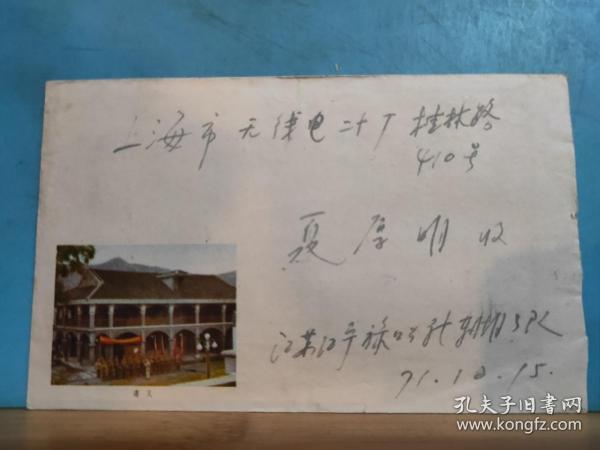 上海市无线电二十厂桂林路
410号
夏厚明收
江苏江宁禄口公社
71.10.15.
遵义
孔夫子旧书网
www.kongfz.com